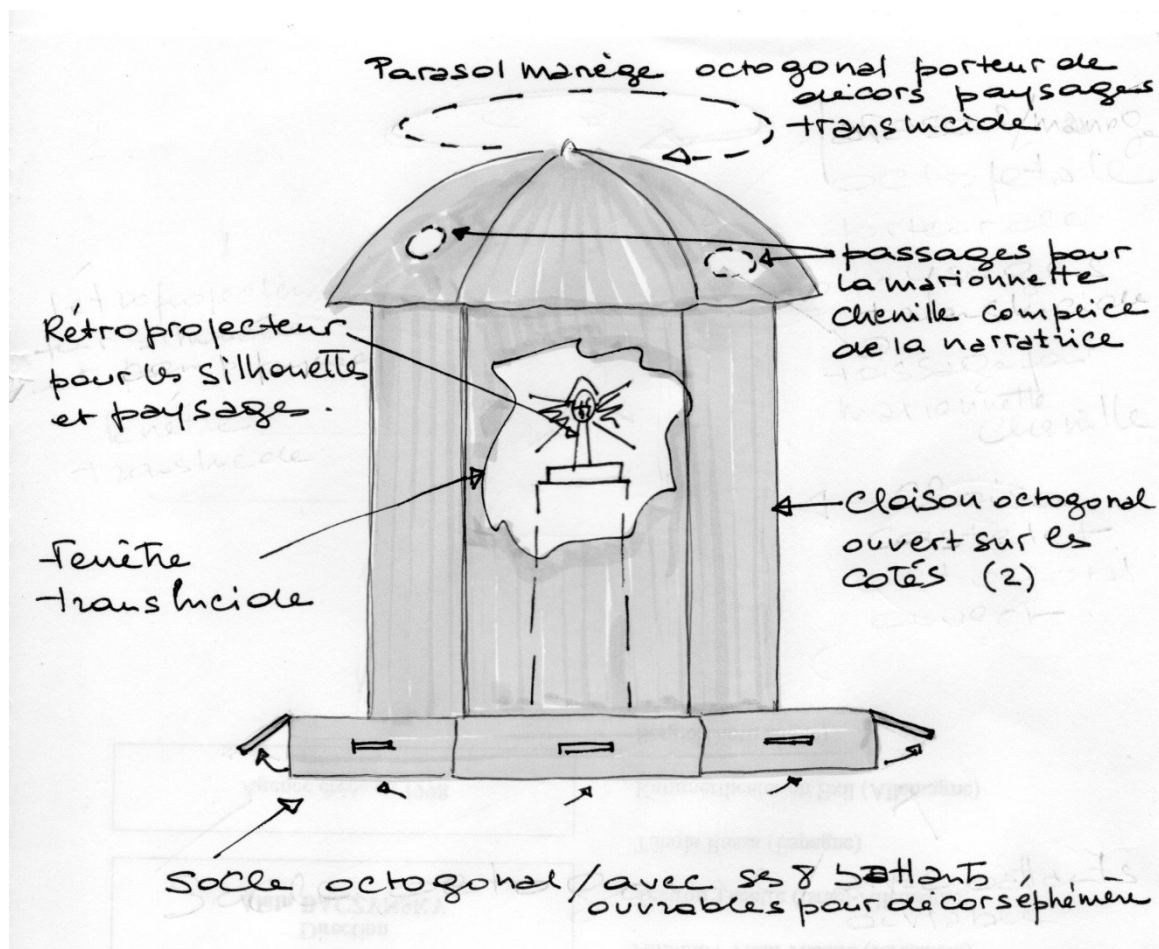 Parasol manège octogonal porteur de
décors paysages
translucide
passages pour
la marionnette
chenille complice
de la narratrice
Rétroprojecteur
pour les silhouettes
et paysages.
cloison octogonal
ouvert sur les
cotés (2)
Fenêtre
translucide
socle octogonal / avec ses 8 battants
ouvrables pour décors éphémère